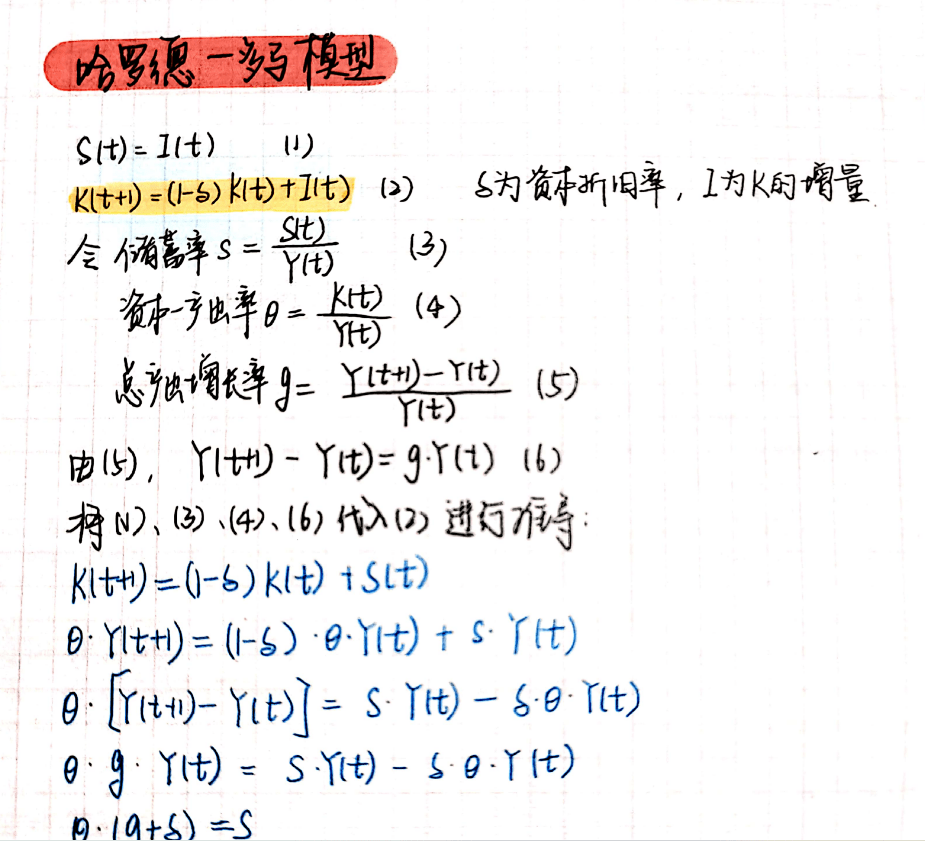 哈罗德-多马模型
S(t)=I(t) (1)
K(t+1)=(1-δ)K(t)+I(t) (2) δ为资本折旧率,I为K的增量
令 储蓄率 s = S(t)/Y(t) (3)
资本-产出率 θ = K(t)/Y(t) (4)
总产出增长率 g = Y(t+1)-Y(t)/Y(t) (5)
由(5), Y(t+1) - Y(t) = g·Y(t) (6)
将(1)、(3)、(4)、(6)代入(2)进行推导:
K(t+1)=(1-δ)K(t)+S(t)
θ·Y(t+1)=(1-δ)·θ·Y(t)+s·Y(t)
θ·[Y(t+1)-Y(t)]=s·Y(t)-δ·θ·Y(t)
θ·g·Y(t)=s·Y(t)-δ·θ·Y(t)
θ·(g+δ)=s